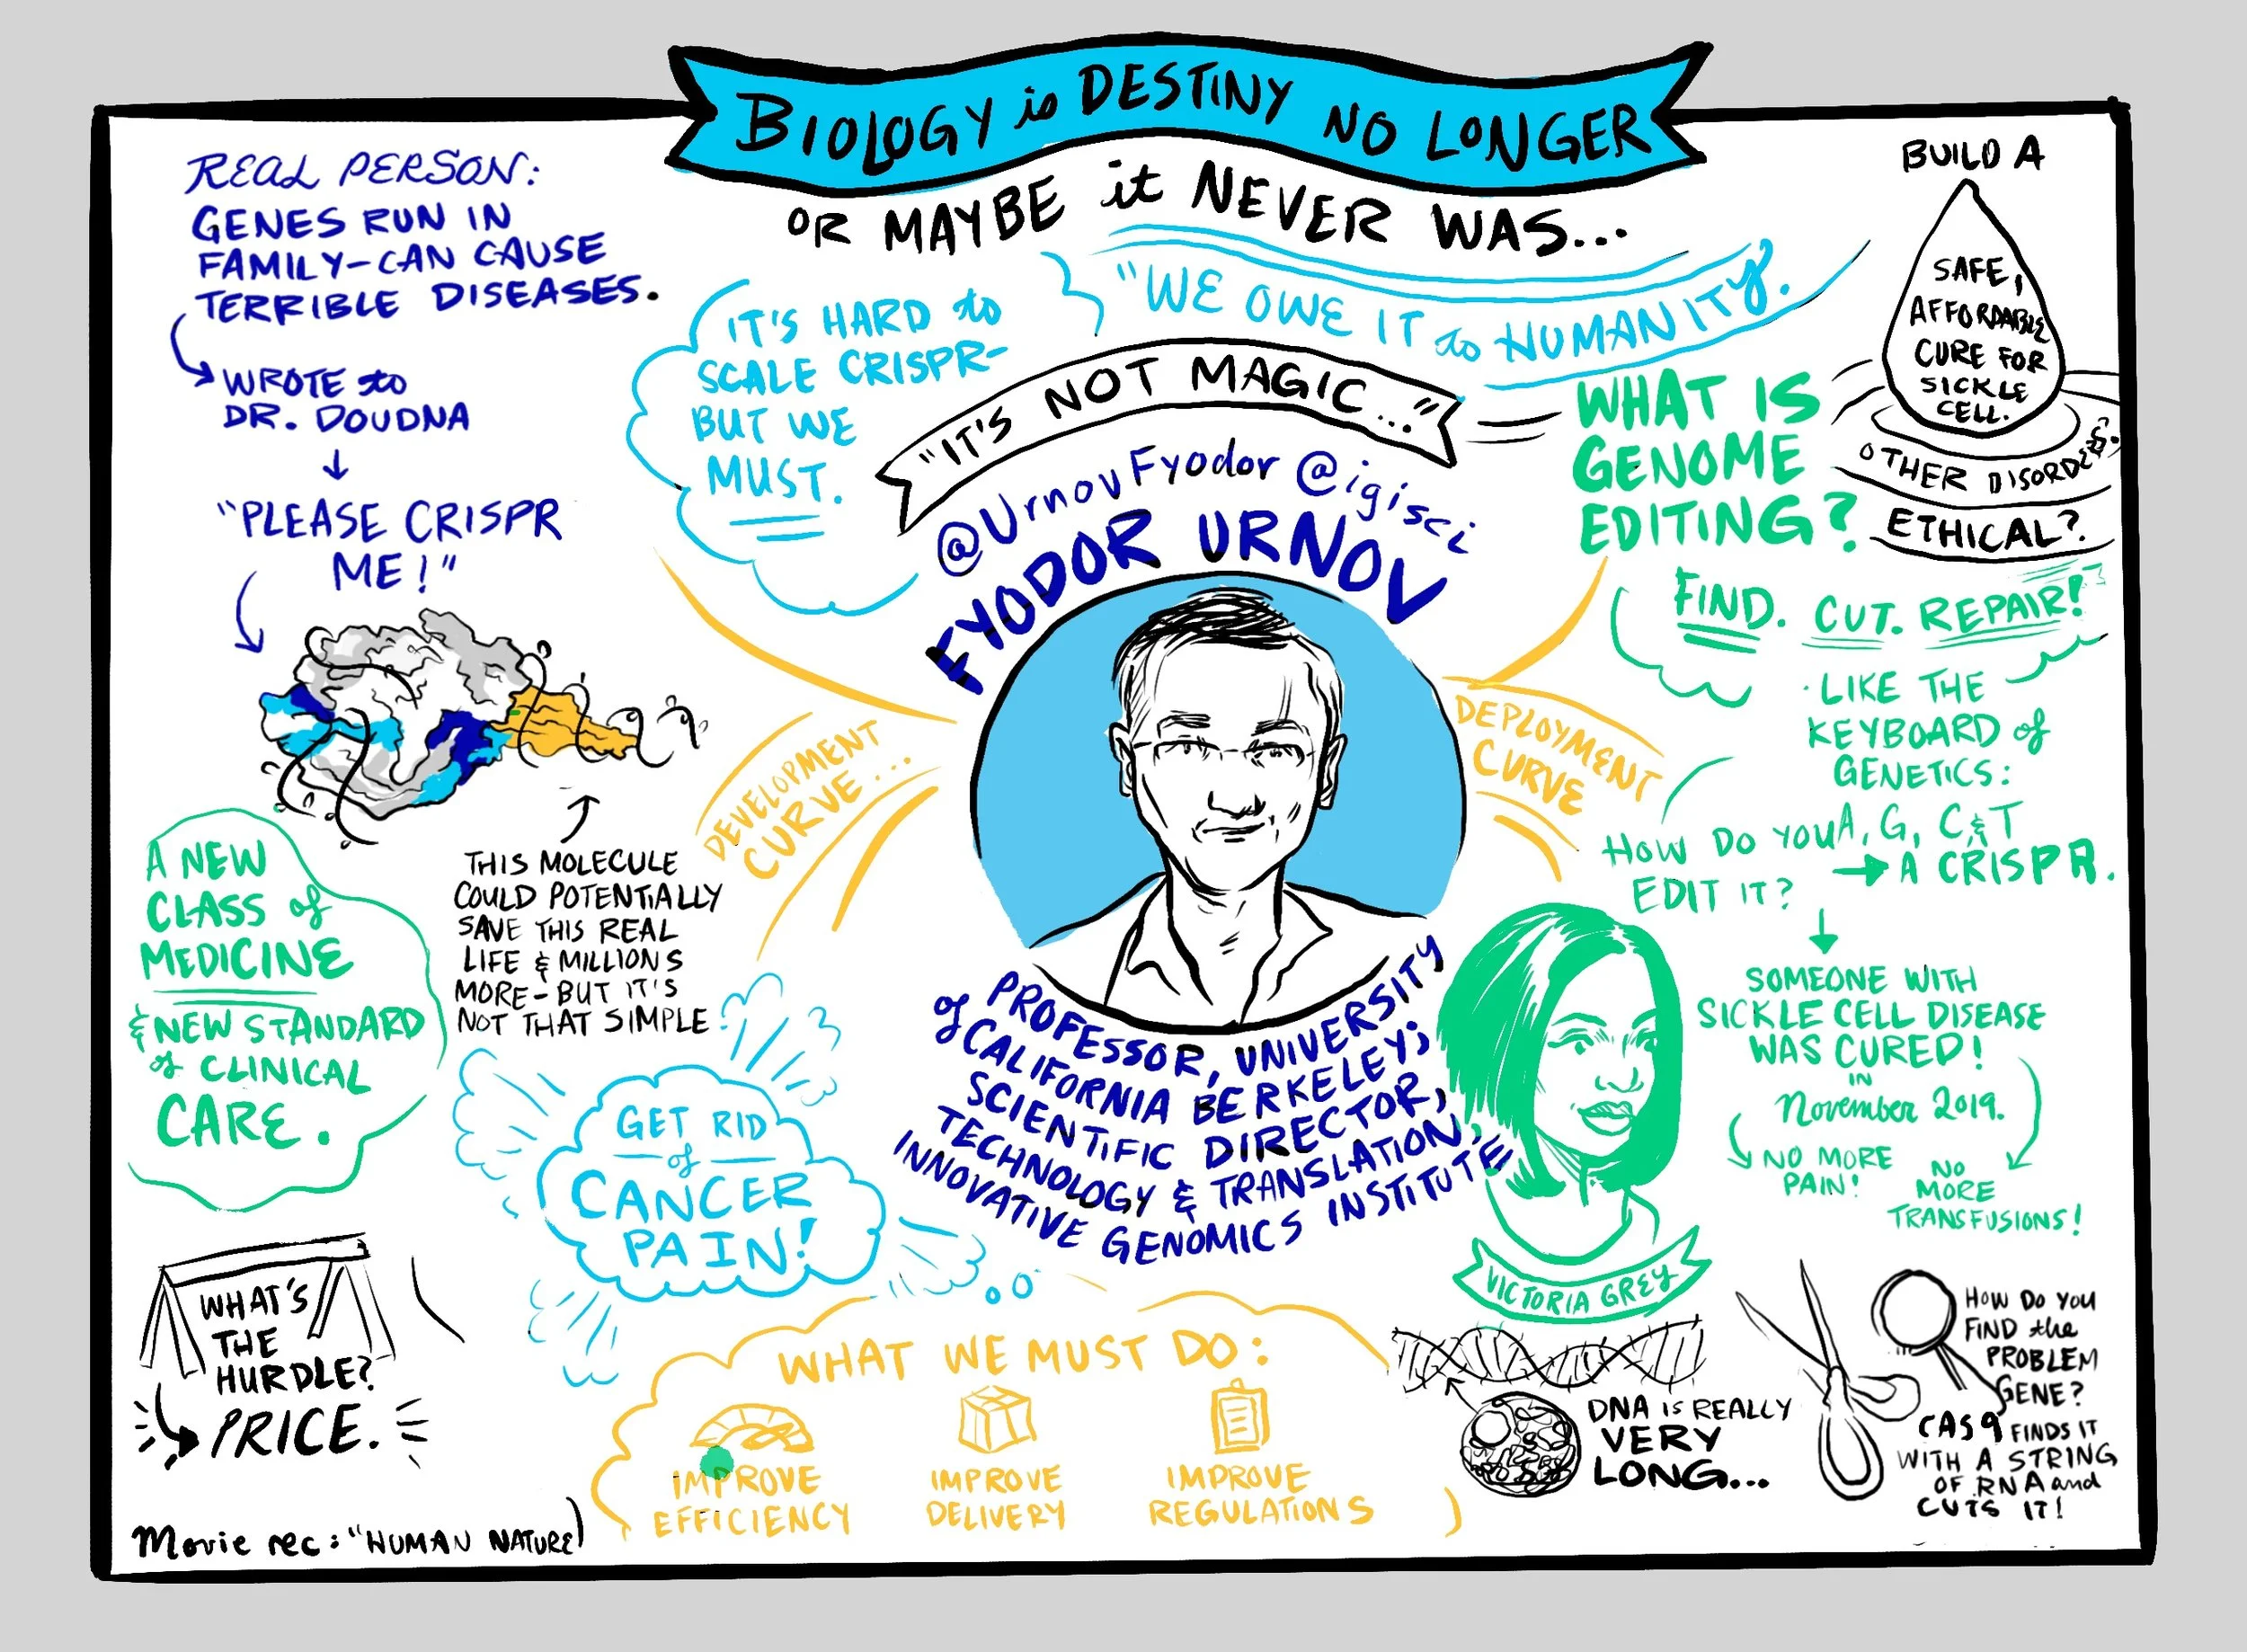 BIOLOGY is DESTINY NO LONGER
OR MAYBE it NEVER WAS...
REAL PERSON:
GENES RUN IN
FAMILY-CAN CAUSE
TERRIBLE DISEASES.
WROTE to
DR. DOUDNA
"PLEASE CRISPR
ME!"
THIS MOLECULE
COULD POTENTIALLY
SAVE THIS REAL
LIFE & MILLIONS
MORE-BUT IT'S
NOT THAT SIMPLE.
A NEW
CLASS of
MEDICINE
& NEW STANDARD
of CLINICAL
CARE.
WHAT'S
THE
HURDLE?
PRICE.
Movie rec: "HUMAN NATURE)
IT'S HARD to
SCALE CRISPR-
BUT WE
MUST.
"WE OWE IT to HUMANITY.
"IT'S NOT MAGIC..."
@UrnovFyodor @igisci
FYODOR URNOV
DEVELOPMENT
CURVE...
DEPLOYMENT
CURVE
PROFESSOR, UNIVERSITY
of CALIFORNIA BERKELEY;
SCIENTIFIC DIRECTOR,
TECHNOLOGY & TRANSLATION,
INNOVATIVE GENOMICS INSTITUTE
GET RID
of
CANCER
PAIN!
WHAT WE MUST DO:
IMPROVE
EFFICIENCY
IMPROVE
DELIVERY
IMPROVE
REGULATIONS
BUILD A
SAFE,
AFFORDABLE
CURE FOR
SICKLE
CELL.
&
OTHER DISORDERS.
ETHICAL?
WHAT IS
GENOME
EDITING?
FIND. CUT. REPAIR!
·LIKE THE
KEYBOARD of
GENETICS:
A, G, C & T
HOW DO YOU
EDIT IT?
A CRISPR.
SOMEONE WITH
SICKLE CELL DISEASE
WAS CURED!
IN
November 2019.
NO MORE
PAIN!
NO
MORE
TRANSFUSIONS!
VICTORIA GREY
DNA IS REALLY
VERY
LONG...
HOW DO YOU
FIND the
PROBLEM
GENE?
CAS9 FINDS IT
WITH A STRING
OF RNA and
CUTS IT!